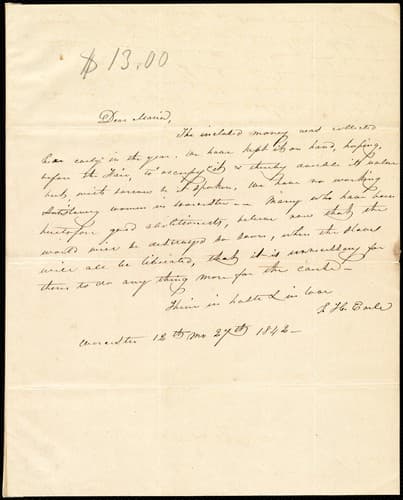 $ 13.00
Dear Maria,
The inclosed money was collected
here early in the year. We have kept it on hand, hoping,
before the Fair, to occupy it & thereby double its value
but, with sorrow be it spoken, We have no working
Antislavery women in Worcester — Many who have been
heretofore good abolitionists, believe now that the
world will be destroyed so soon, when the slaves
will all be liberated, that it is unnecessary for
them to do any thing more for the cause —
Thine in haste & in love
S. H. Earle
Worcester 12th mo 27th 1842 —